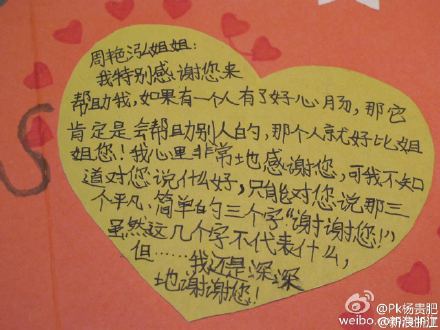 周艳泓姐姐:
我特别感谢您来
帮助我,如果有一个人有了好心肠,那它
肯定是会帮助别人的,那个人就好比姐
姐您!我心里非常地感谢您,可我不知
道对您说什么好,只能对您说那三
个平凡、简单的三个字“谢谢您!”
虽然这几个字不代表什么,
但……我还是深深
地谢谢您!
@Pk杨贵肥
@新浪浙江